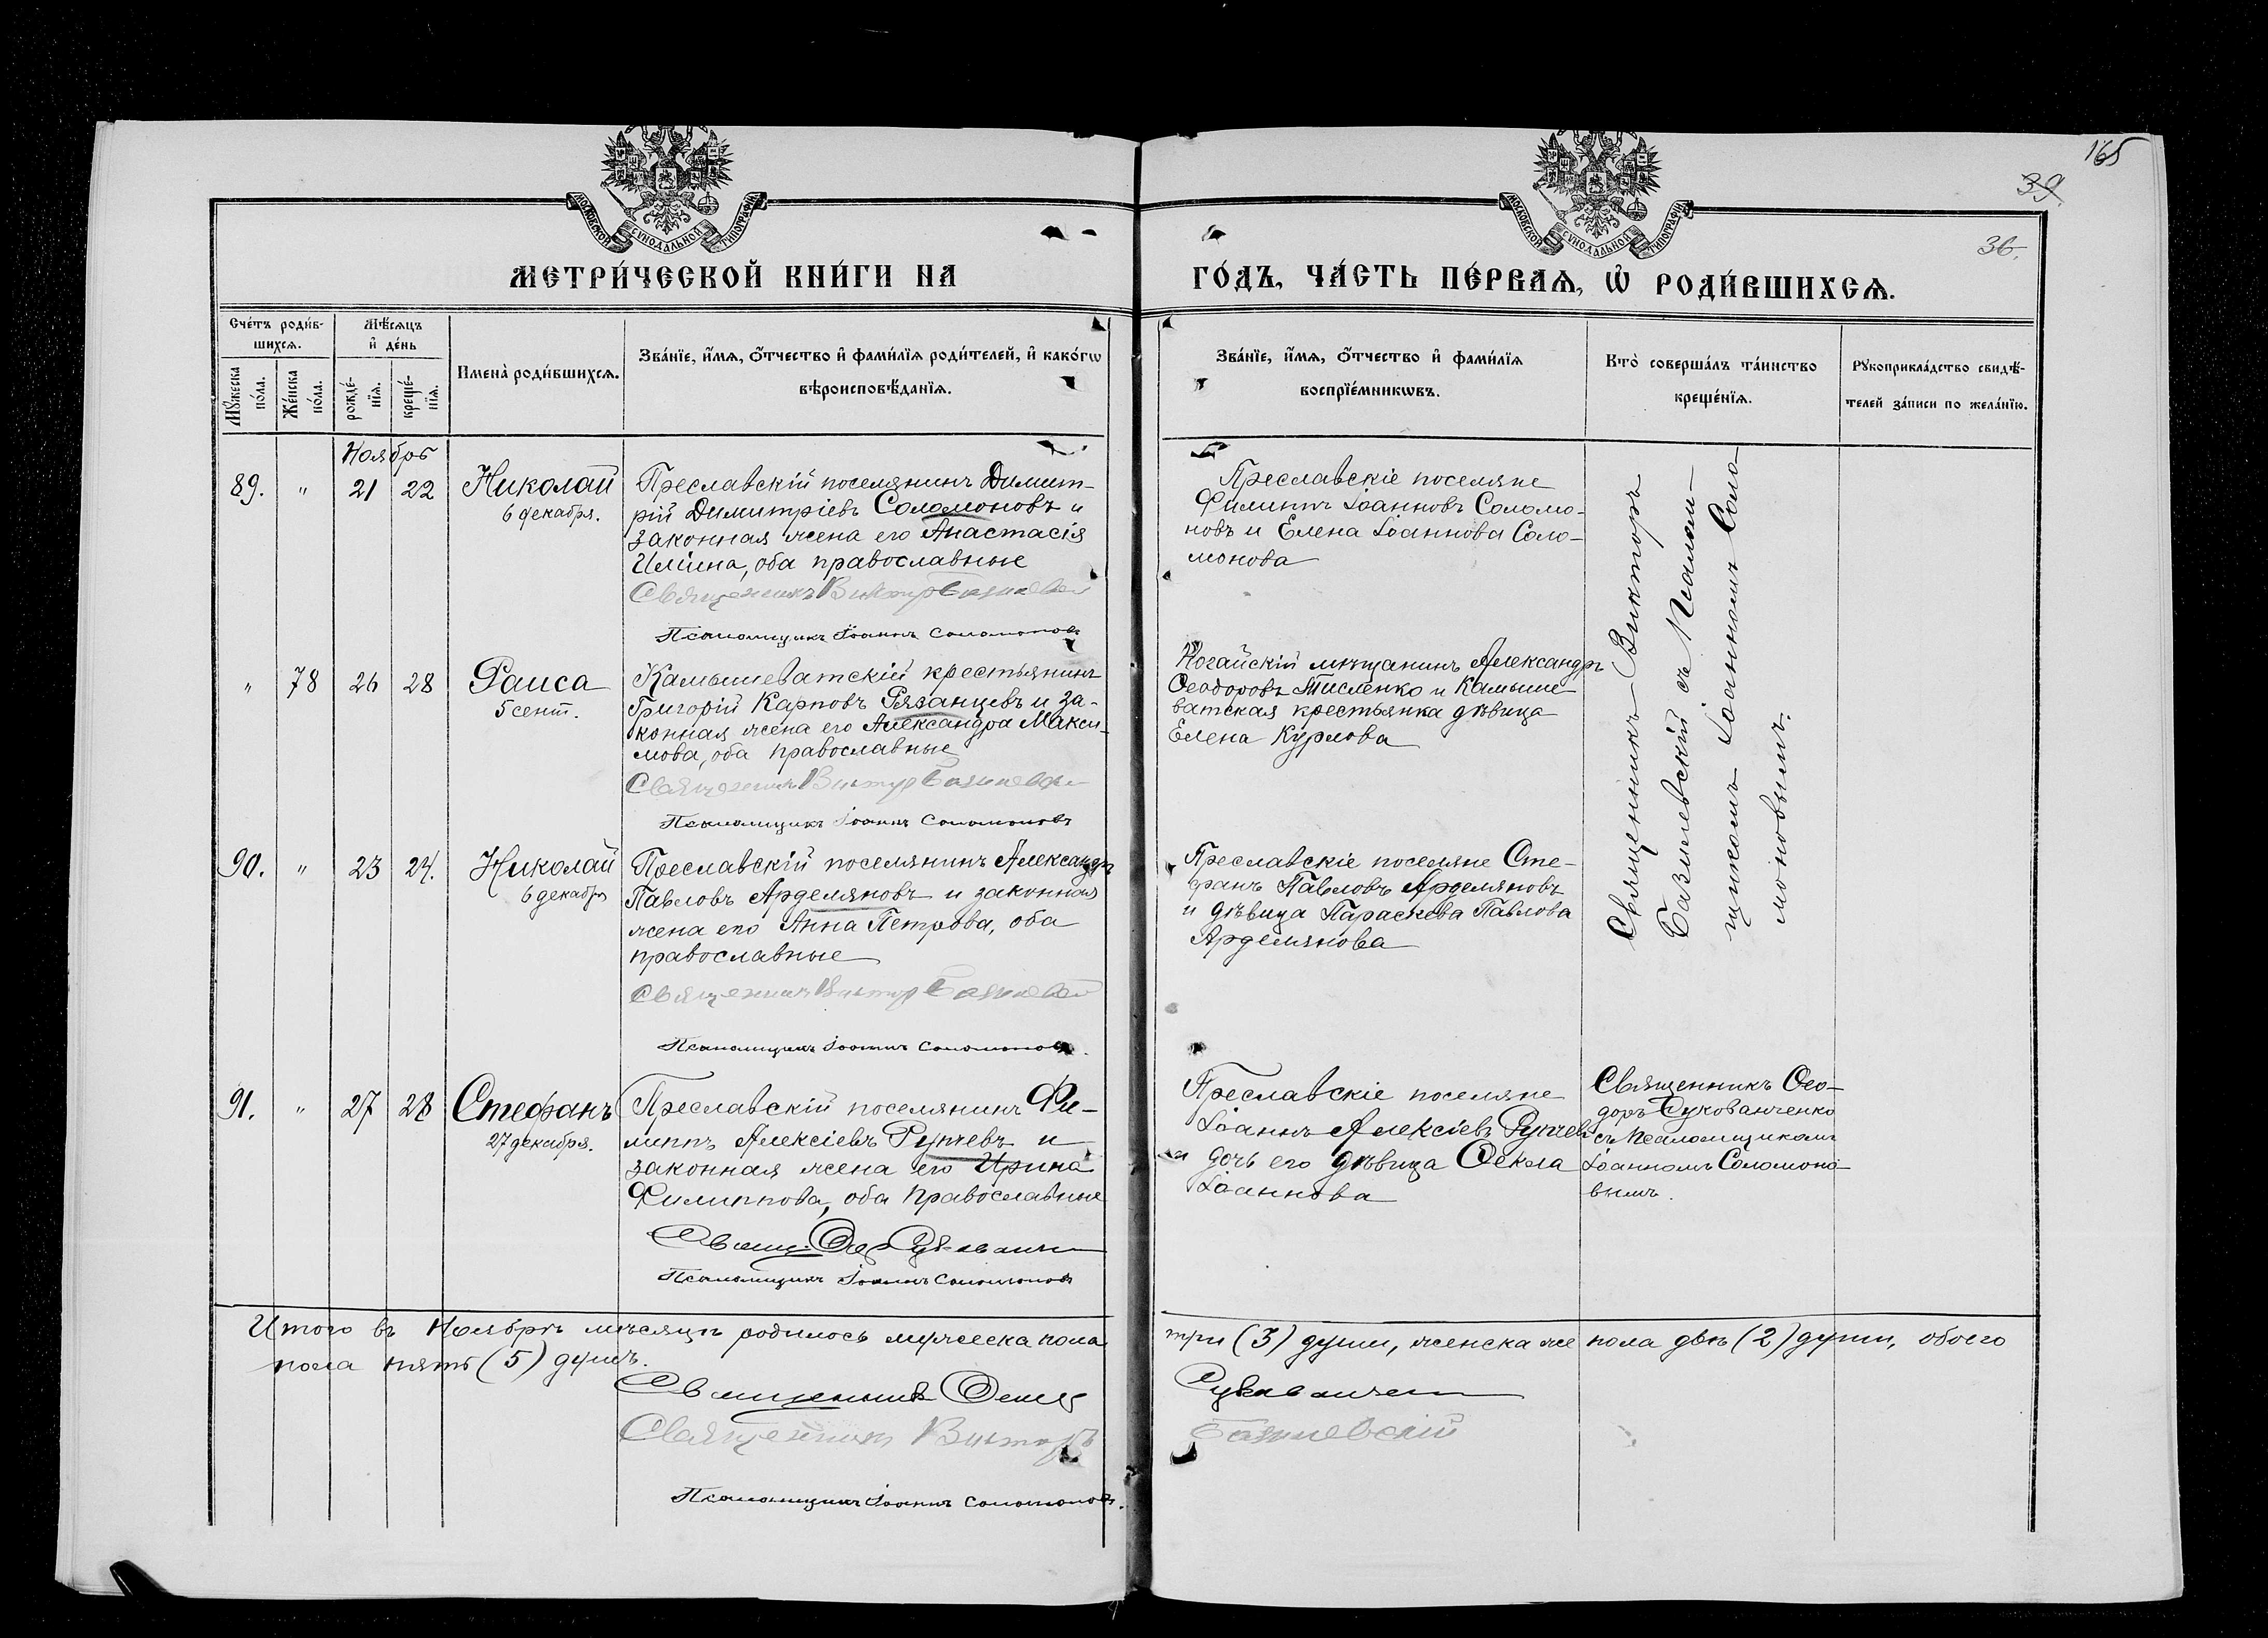 165
39
36.
МОСКОВСКОЙ СѴНОДАЛЬНОЙ ТИПОГРАФІИ
МОСКОВСКОЙ СѴНОДАЛЬНОЙ ТИПОГРАФІИ
МЕТРИ́ЧЕСКОЙ КНИ́ГИ НА
ГО́ДЪ, ЧА́СТЬ ПЕ́РВАѦ, Ѡ҆ РОДИ́ВШИХСѦ.
Сче́тъ роди́в-
шихсѧ.
Мѣ́сѧцъ
и҆ де́нь
Мꙋ́жеска
по́ла.
Же́нска
по́ла.
рожде́-
нїѧ.
креще́-
нїѧ.
Имена̀ роди́вшихсѧ.
Зва́нїе, и҆́мѧ, ѻ҆́тчество и҆ фами́лїѧ роди́телей, и҆ како́гѡ
вѣроисповѣ́данїѧ.
Зва́нїе, и҆́мѧ, ѻ҆́тчество и҆ фами́лїѧ
воспрїе́мникѡвъ.
Кто̀ соверша́лъ та́инство
креще́нїѧ.
Рꙋкоприкла́дство свидѣ́-
телей за́писи по жела́нїю.
Ноябрь
89. " 21 22 Николай
6 декабря.
Преславскій поселянинъ Димит-
рій Димитріевъ Соломоновъ и
законная жена его Анастасія
Иліина, оба православные
Священникъ Викторъ Базилевскій
Псаломщикъ Іоаннъ Соломоновъ
Преславскіе поселяне
Филиппъ Іоанновъ Соломо-
новъ и Елена Іоаннова Соло-
монова
Священникъ Викторъ
Базилевскій съ Псалом-
щикомъ Іоанномъ Соло-
моновымъ.
" 78 26 28 Раиса
5 сент.
Камышеватскій крестьянинъ
Григорій Карповъ Рязанцевъ и за-
конная жена его Александра Макси-
мова, оба православные
Священникъ Викторъ Базилевскій
Псаломщикъ Іоаннъ Соломоновъ
Ногайскій мѣщанинъ Александръ
Ѳеодоровъ Тисленко и Камыше-
ватская крестьянка дѣвица
Елена Курлова
90. " 23 24. Николай
6 декабря
Преславскій поселянинъ Александръ
Павловъ Арделяновъ и законная
жена его Анна Петрова, оба
православные
Священникъ Викторъ Базилевскій
Псаломщикъ Іоаннъ Соломоновъ.
Преславскіе поселяне Сте-
фанъ Павловъ Арделяновъ
и дѣвица Параскева Павлова
Арделянова
91. " 27 28 Стефанъ
27 декабря.
Преславскій поселянинъ Фи-
липпъ Алексіевъ Рупчевъ и
законная жена его Ирина
Филиппова, оба православные
Псаломщикъ Іоаннъ Соломоновъ
Преславскіе поселяне
Іоаннъ Алексіевъ Рупчевъ
и дочь его дѣвица Ѳекла
Іоаннова
Священникъ Ѳео-
доръ
съ Псаломщикомъ
Іоанномъ Соломоно-
вымъ.
Итого въ Ноябрѣ мѣсяцѣ родилось мужеска пола три (3) души, женска же пола двѣ (2) души, обоего
пола пять (5) душъ.
Священникъ
Священникъ Викторъ Базилевскій
Псаломщикъ Іоаннъ Соломоновъ.